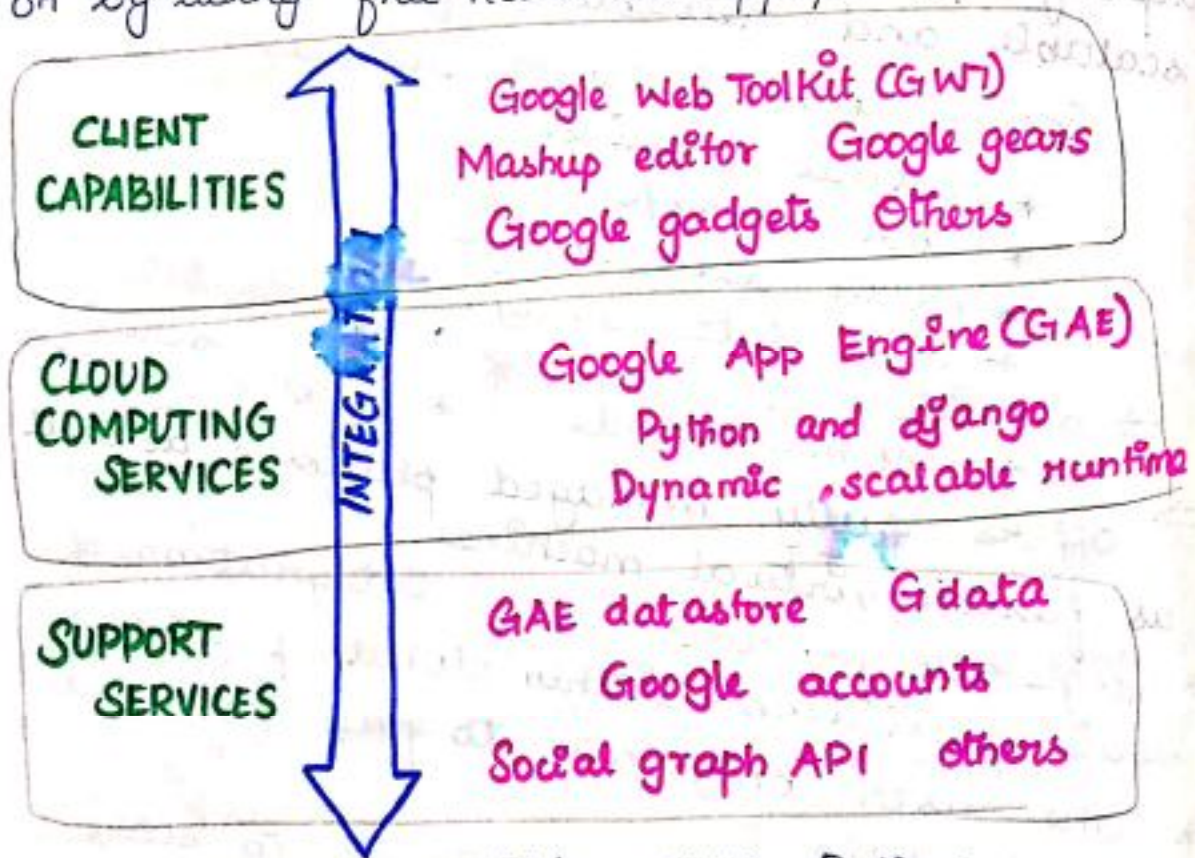 on by using
CLIENT
CAPABILITIES
Google Web ToolKit (GWT)
Mashup editor Google gears
Google gadgets Others
INTEGRATION
CLOUD
COMPUTING
SERVICES
Google App Engine (GAE)
Python and django
Dynamic, scalable runtime
SUPPORT
SERVICES
GAE datastore Gdata
Google accounts
Social graph API others